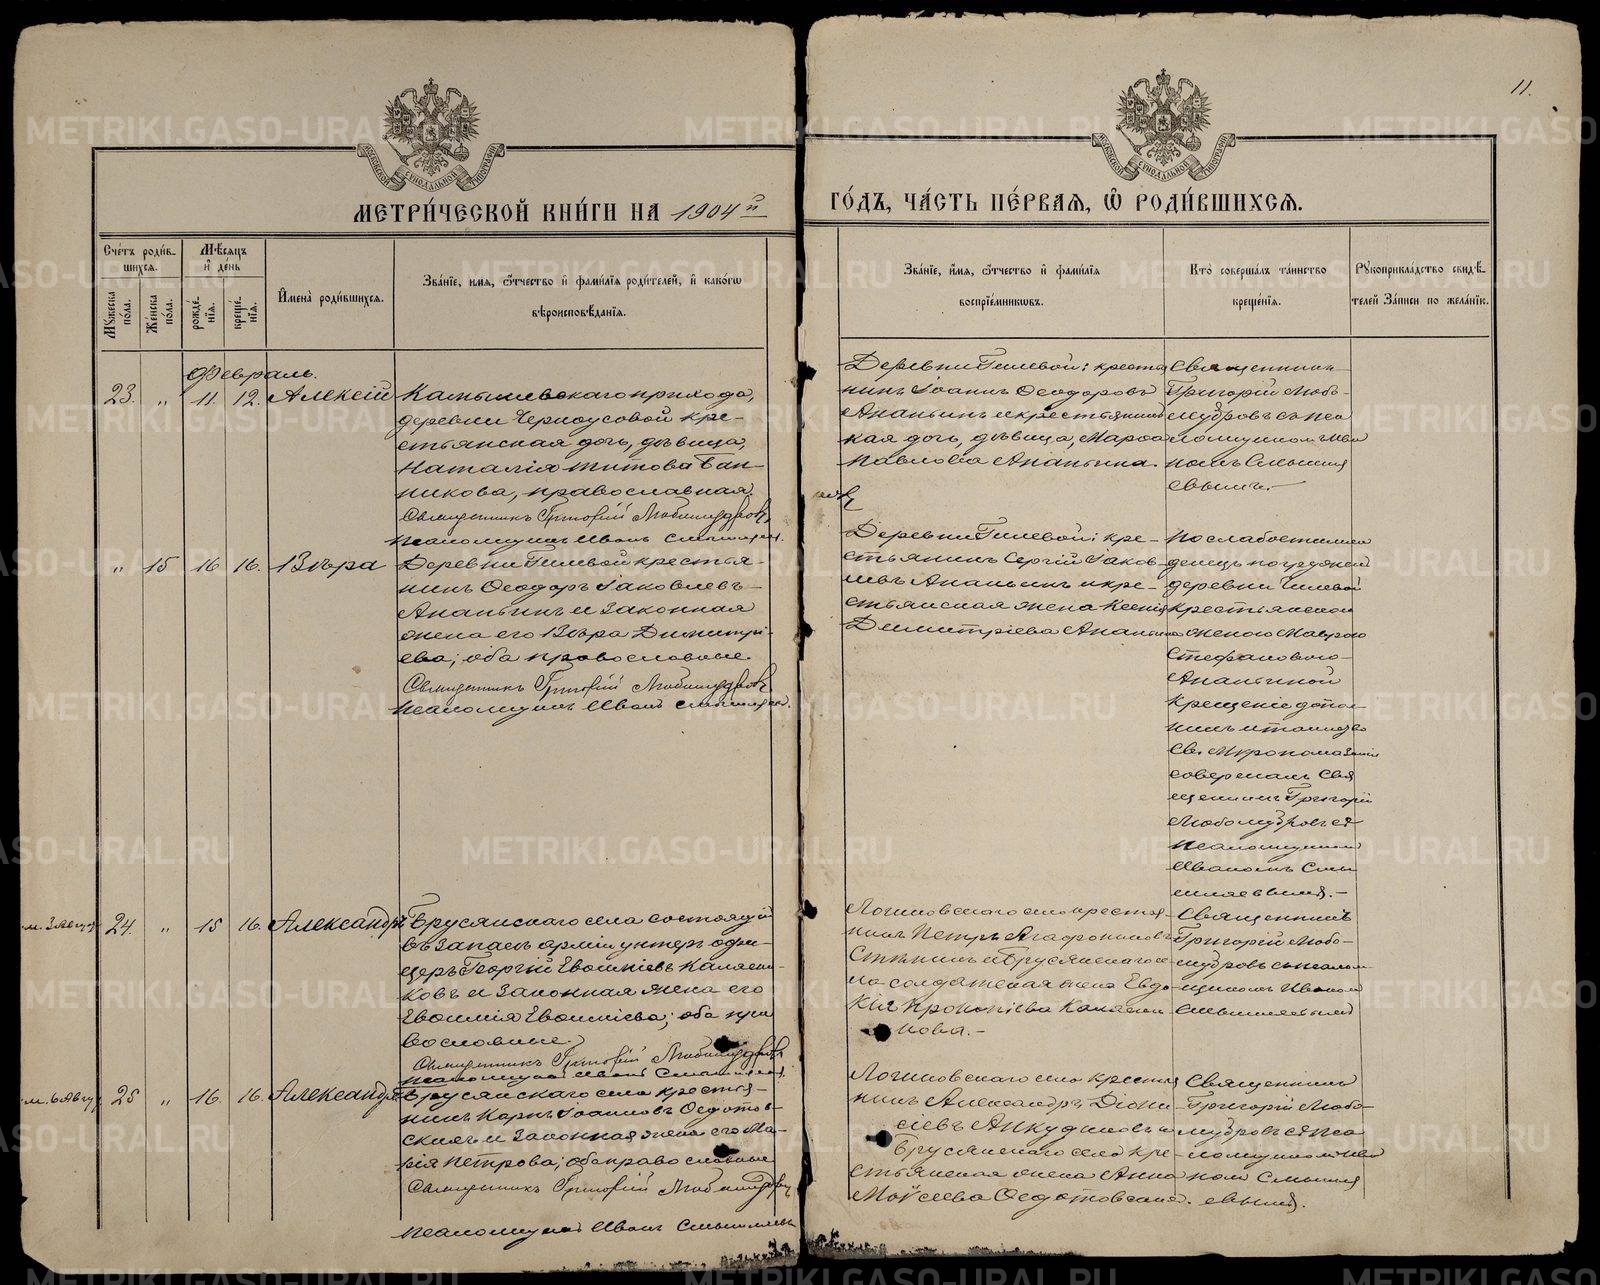 11.
МЕТРИ́ЧЕСКОЙ КНИ́ГИ НА 1904 й
ГО́ДЪ, ЧА́СТЬ ПЕ́РВАЯ, Ѡ РОДИ́ВШИХСЯ.
Сче́тъ роди́в-
шихся.
Мѣ́сяцъ
и де́нь
Мꙋ́жеска по́ла.
Же́нска по́ла.
рожде́-нїя.
креще́-нїя.
И́мена̀ роди́вшихся.
Зва́нїе, имя, ѻ҆́тчество и фами́лїя роди́телей, и како́гѡ
вѣроисповѣ́данїя.
Зва́нїе, и́мя, ѻ҆́тчество и фами́лїя
воспрїе́мникѡвъ.
Кто̀ соверша́лъ та́инство
креще́нїя.
Рꙋкоприкла́дство свидѣ́-
телей За́писи по жела́нїю.
Февраль.
23. „ 11. 12. Алексій
Камышевскаго прихода,
деревни Черноусовой кре-
стьянская дочь, дѣвица,
Наталія Титова Бан-
никова, православная.
Священникъ Григорій Любомудровъ,
псаломщикъ Иванъ Смышляев.
Деревни Гилевой: крестья
нинъ Іоаннъ Ѳеодоровъ
Ананьинъ и крестьянс
кая дочь, дѣвица, Марѳа
Павлова Ананьина.
Священник
Григорій Любо-
мудровъ съ пса
ломщикомъ Ива
номъ Смышля
евымъ.-
„ 15 16 16. Вѣра
Деревни Гилевой крестья-
нинъ Ѳеодоръ Іаковлевъ
Ананьинъ и законная
жена его Вѣра Димитрі-
ева; оба православные.
Священникъ Григорій Любомудровъ
псаломщикъ Иванъ Смышляев.
Деревни Гилевой: кре-
стьянинъ Сергій Іаков-
левъ Ананьинъ и кре-
стьянская жена Ксенія
Димитріева Ананьина
По слабости мла
денецъ погруженъ
деревни Гилевой
крестьянской
женою Маврою
Стефановою
Ананьиной
Крещеніе допол
нилъ и таинство
Св. Мѵропомазанія
совершалъ Свя
щенникъ Григорій
Любомудровъ съ
псаломщикомъ
Иваномъ Смы
шляевымъ.-
м. 3 Август 24. „ 15 16. Александръ
Брусянскаго села состоящій
въ запасѣ арміи унтеръ офи-
церъ Георгій Евѳиміевъ Калаш-
ковъ и законная жена его
Евѳимія Евѳиміева; оба пра
вославные.
Священникъ Григорій Любомудровъ
псаломщикъ Иванъ Смышляев.
Логиновскаго села крестья-
нинъ Петръ Агафониковъ
и Брусянскаго се
ла солдатская жена Евдо
кія Прокопіева
нова.-
Священникъ
Григорій Любо-
мудровъ съ псалом
щикомъ Иваномъ
Смышляевымъ
м. 6 Август 25 „ 16. 16. Александръ
Брусянскаго села крестья-
нинъ Карпъ Іоанновъ Ѳедотов-
скихъ и законная жена его Ма-
рія Петрова; оба православные
Священникъ Григорій Любомудровъ
псаломщикъ Иванъ Смышляевъ
Логиновскаго села крестья
нинъ Александръ Діони-
сіевъ Анкудиновъ и
Брусянскаго села кре-
стьянская жена Анна
Моѵсеева Ѳедотовская.
Священникъ
Григорій Любо-
мудровъ съ пса
ломщикомъ Ива
номъ Смышля
евымъ.
METRIKI.GASO-URAL.RU